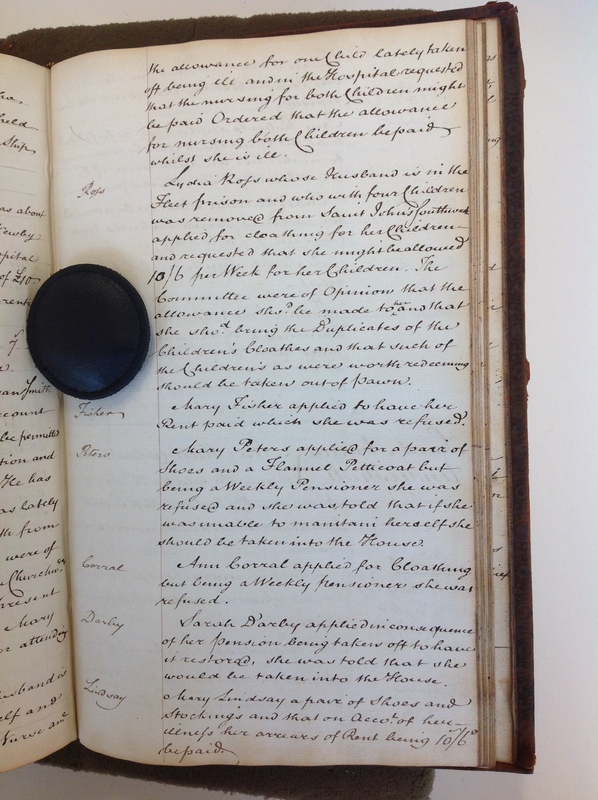 the allowance for one Child lately taken
off being ill and in the Hospital requested
that the nursing for both Children might
be paid Ordered that the allowance
for nursing both Children be paid
whilst she is ill.
Ross
Lydia Ross whose Husband is in the
Fleet prison and who with four Children
was removed from Saint John's Southwark
applied for cloathing for her Children
and requested that she might be allowed
10/6 per Week for her Children. The
Committee were of Opinion that the
allowance sho.d be made to her and that
she sho.d bring the Duplicates of the
Children's Cloathes and that such of
the Children's as were worth redeeming
should be taken out of pawn.
Fisher
Mary Fisher applied to have her
Rent paid which she was refused.
Peters
Mary Peters applied for a pair of
Shoes and a Flannel Petticoat but
being a Weekly Pensioner she was
refused and she was told that if she
was unable to maintani herself she
should be taken into the House.
Corral
Ann Corral applied for Cloathing
but being a Weekly pensioner she was
refused.
Darby
Sarah Darby applied in consequence
of her pension being taken off to have
it restored, she was told that she
would be taken into the House.
Lindsay
Mary Lindsay a pair of Shoes and
Stockings and that on Acco.t of her
illness her arrears of Rent being 10/6
be paid.
held
Ship
as about
Newby
Hospital
of £10
Smith
account
be permitted
tion and
He has
as lately
from
were of
Churchw.
present
Mary
or attending
husband is
elf and
Nurse and